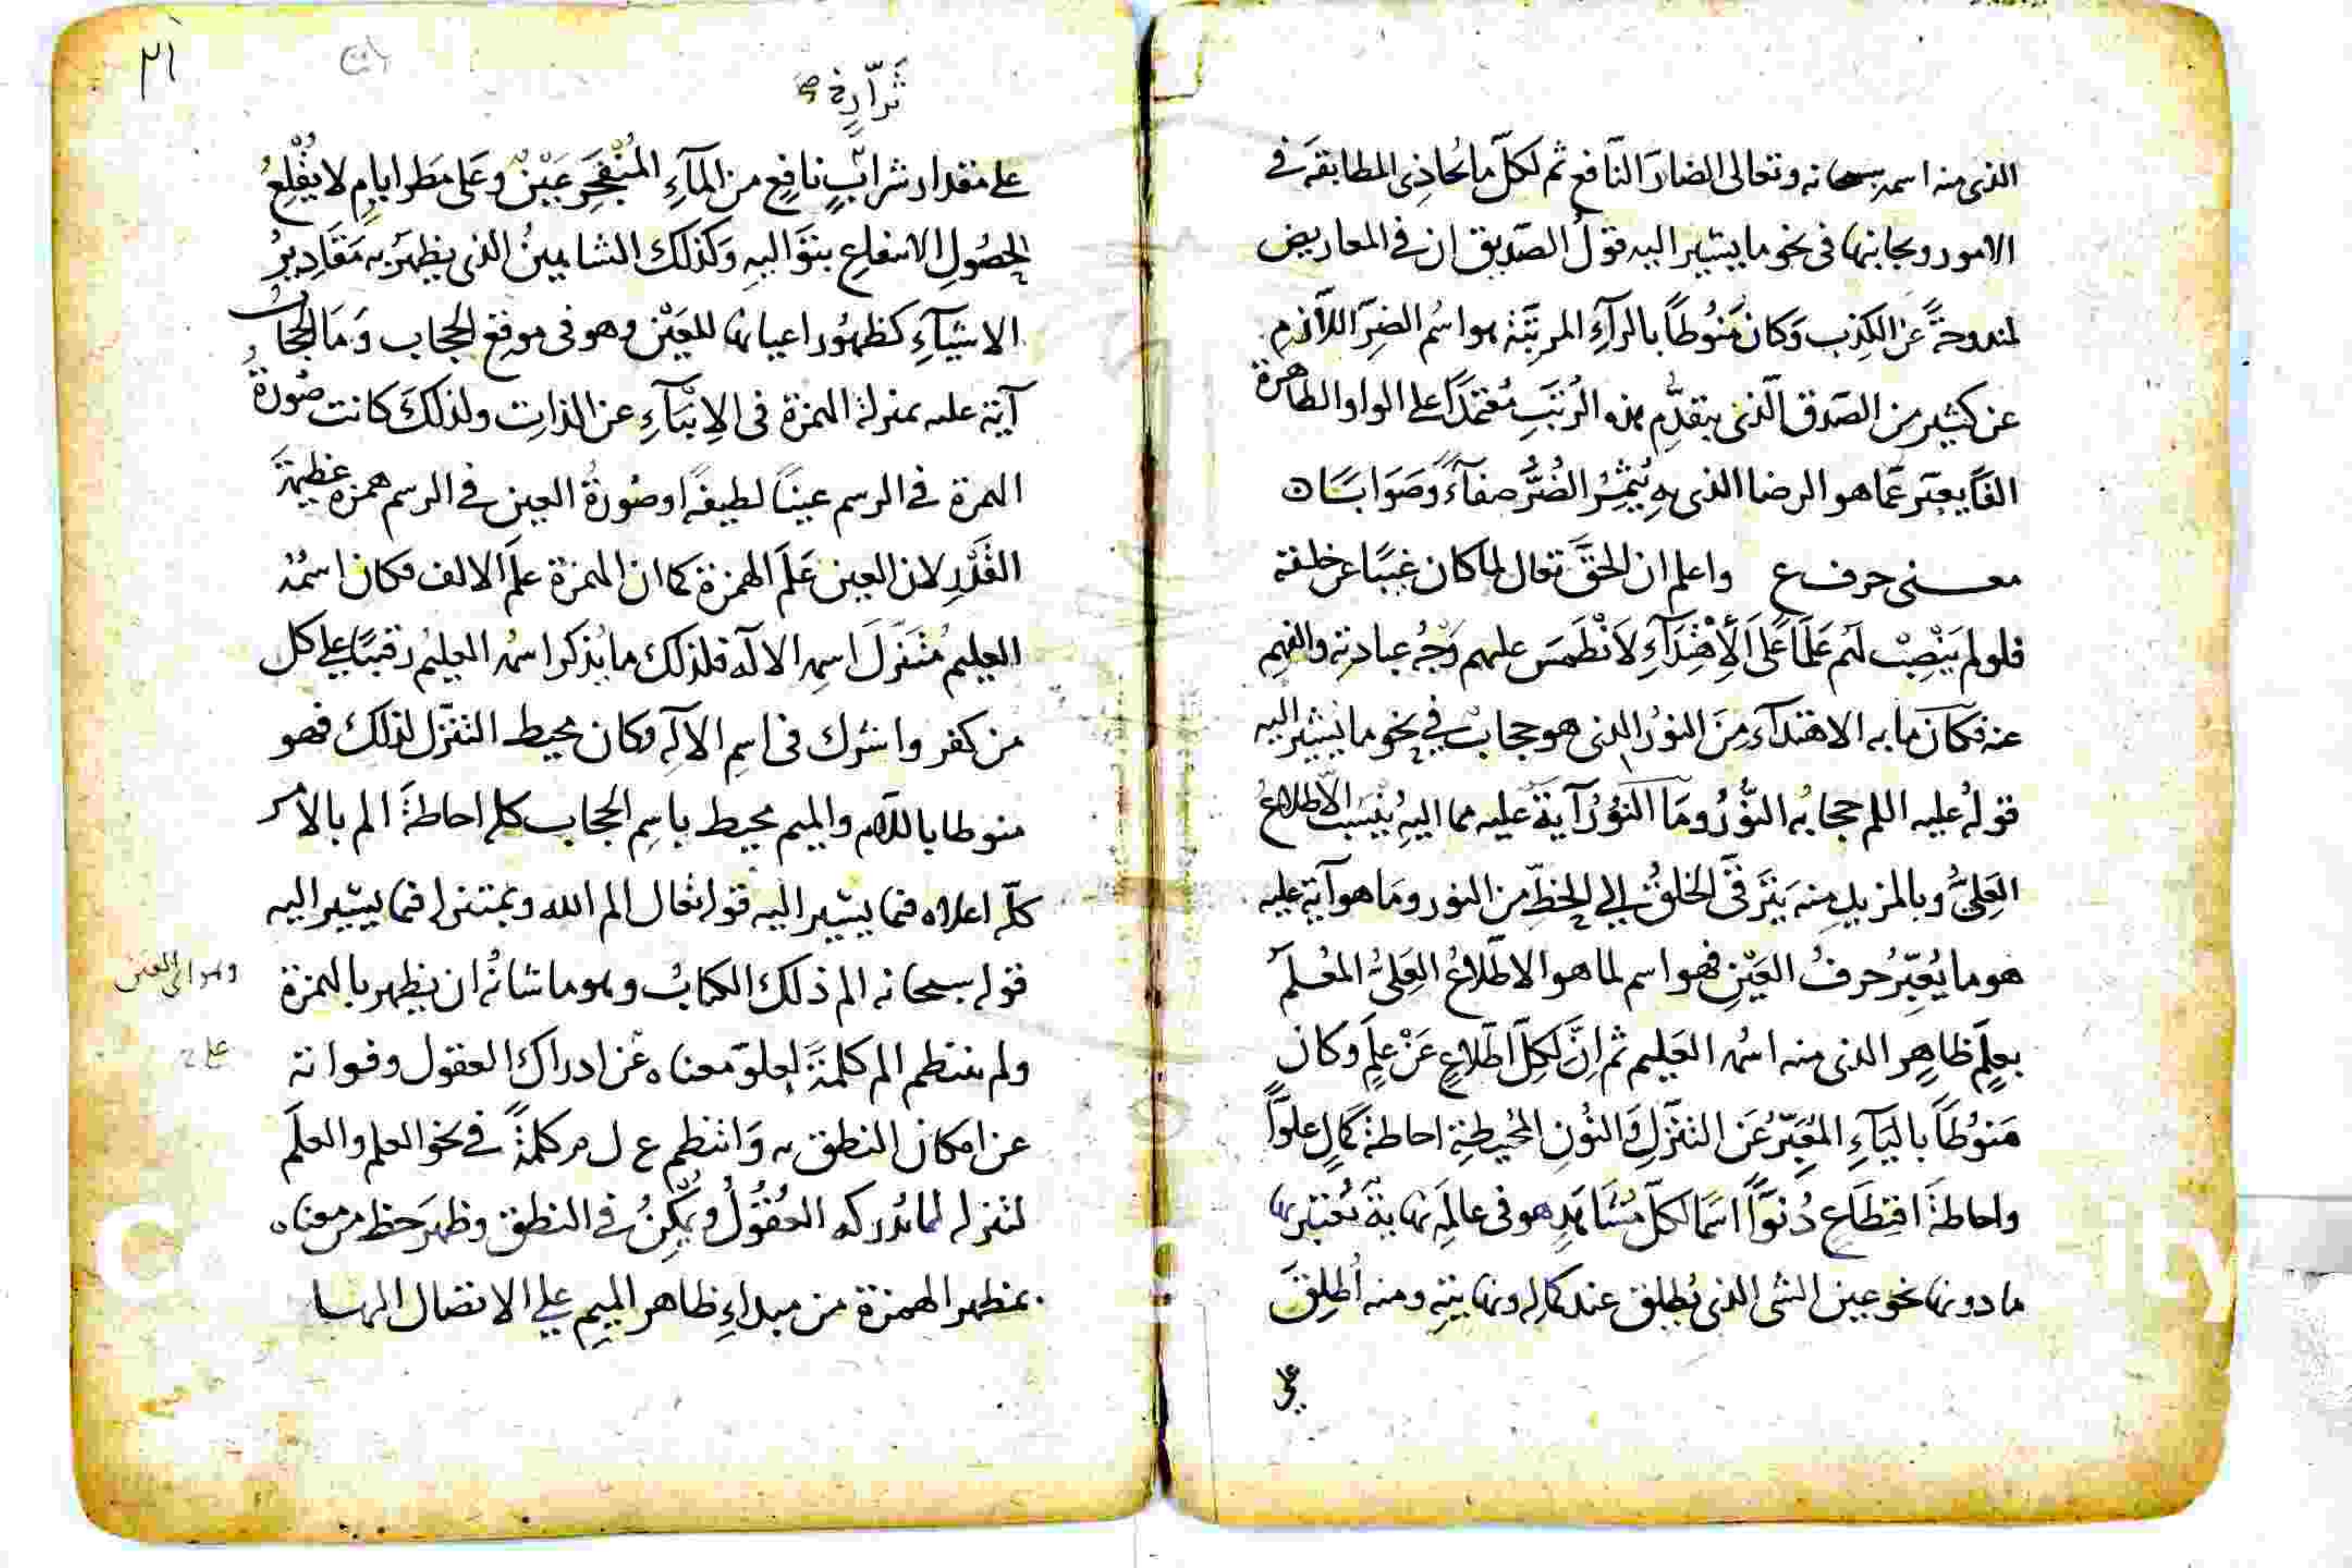 الذى منه اسمه سبحانه وتعالى الضار النافع ثم لكل ما تحاذى المطابقة فى
الامور ومجانبها فى نحو ما يشير اليه قول الصديق ان فى المعاريض
لمندوحة عن الكذب وكان منوطا بالراء المرتبة هو اسم الضر اللازم
عن كثير من الصدق الذى يتقدم هذه الرتب معتمدا على الواو الظاهرة
الفا يعبر عما هو الرضا الذى به يثمر الضر صفاء وصوابا
معنى حرف ع واعلم ان الحق تعالى لما كان غيبا عن خلقه
فلو لم ينصب لهم علما على الاهتداء لانطمس عليهم وجه عبادته والفهم
عنه فكان ما به الاهتداء من النور الذى هو حجاب فى نحو ما يشير اليه
قوله عليه السلم حجابه النور وما النور آية عليه مما اليه ينسب الاطلاع
العلى وبالمزيد منه يترقى الخلق الى الحظ من النور وما هو آية عليه
هو ما يعبر حرف العين فهو اسم لما هو الاطلاع العلى المعلم
بعلم ظاهر الذى منه اسمه العليم ثم ان لكل اطلاع عن علم وكان
منوطا بالياء المعبر عن التنزل والنون المحيطة احاطة كمال علوا
واحاطة اقتطاع دنوا اسما لكل مشاهد هو فى عالمه نهاية تعتبر بها
ما دونها نحو عين الشى الذى يطلق عند كماله ونهايته ومنه اطلق
على
٢١
على مقدار شراب نافع من الماء المنفجر عين وعلى مطر ايام لا يقلع
لحصول الانتفاع بتواليه وكذلك الشاهين الذى يظهر به مقادير
الاشياء كظهور اعيانها للعين وهو فى موقع الحجاب وما الحجاب
آية عليه بمنزلة الهمزة فى الانباء عن الذات ولذلك كانت صورة
الهمزة فى الرسم عينا لطيفة او صورة العين فى الرسم همزة عظيمة
القدر لان العين علم الهمزة كما ان الهمزة علم الالف فكان اسمه
العليم متنزل اسمه الاله فلذلك ما يذكر اسمه العليم رقيبا على كل
من كفر واشرك فى اسم الاله وكان محيط التنزل لذلك فهو
منوطا باللام والميم محيط باسم الحجاب كله احاطة الم بالامر
كله اعلاه فيما يشير اليه قوله تعالى الم الله وبمتنزله فيما يشير اليه
قوله سبحانه الم ذلك الكتاب وهو ما شانه ان يظهر بالهمزة
وهو اى العين
ولم ينتظم الم كلمة لعلو معناه عن ادراك العقول وفواته
عن امكان النطق به وانتظم ع ل م كلمة فى نحو العلم والعلم
لتنزله لما تدركه العقول ويمكن فى النطق وظهر حظ من معناه
بمظهر الهمزة من مبداء ظاهر الميم على الاتصال